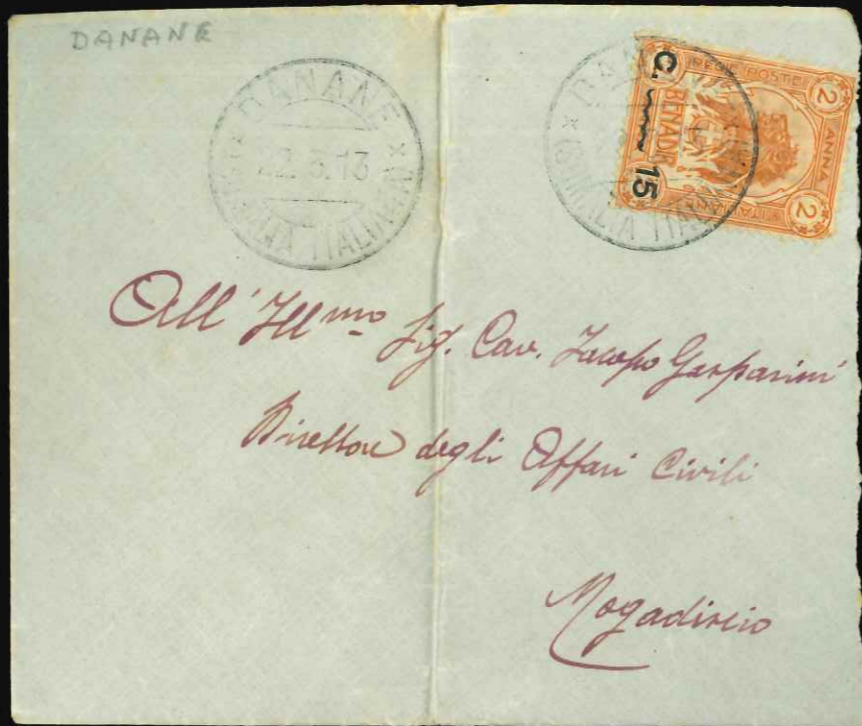 DANANE
DANANE
22.3.13
(SOMALIA ITALIANA)
REGIE POSTE ITAL
2 ANNA 2
BENADIR
C. 15
All' Illmo Sig. Cav. Jacopo Gasparini
Direttore degli Affari Civili
Mogadiscio